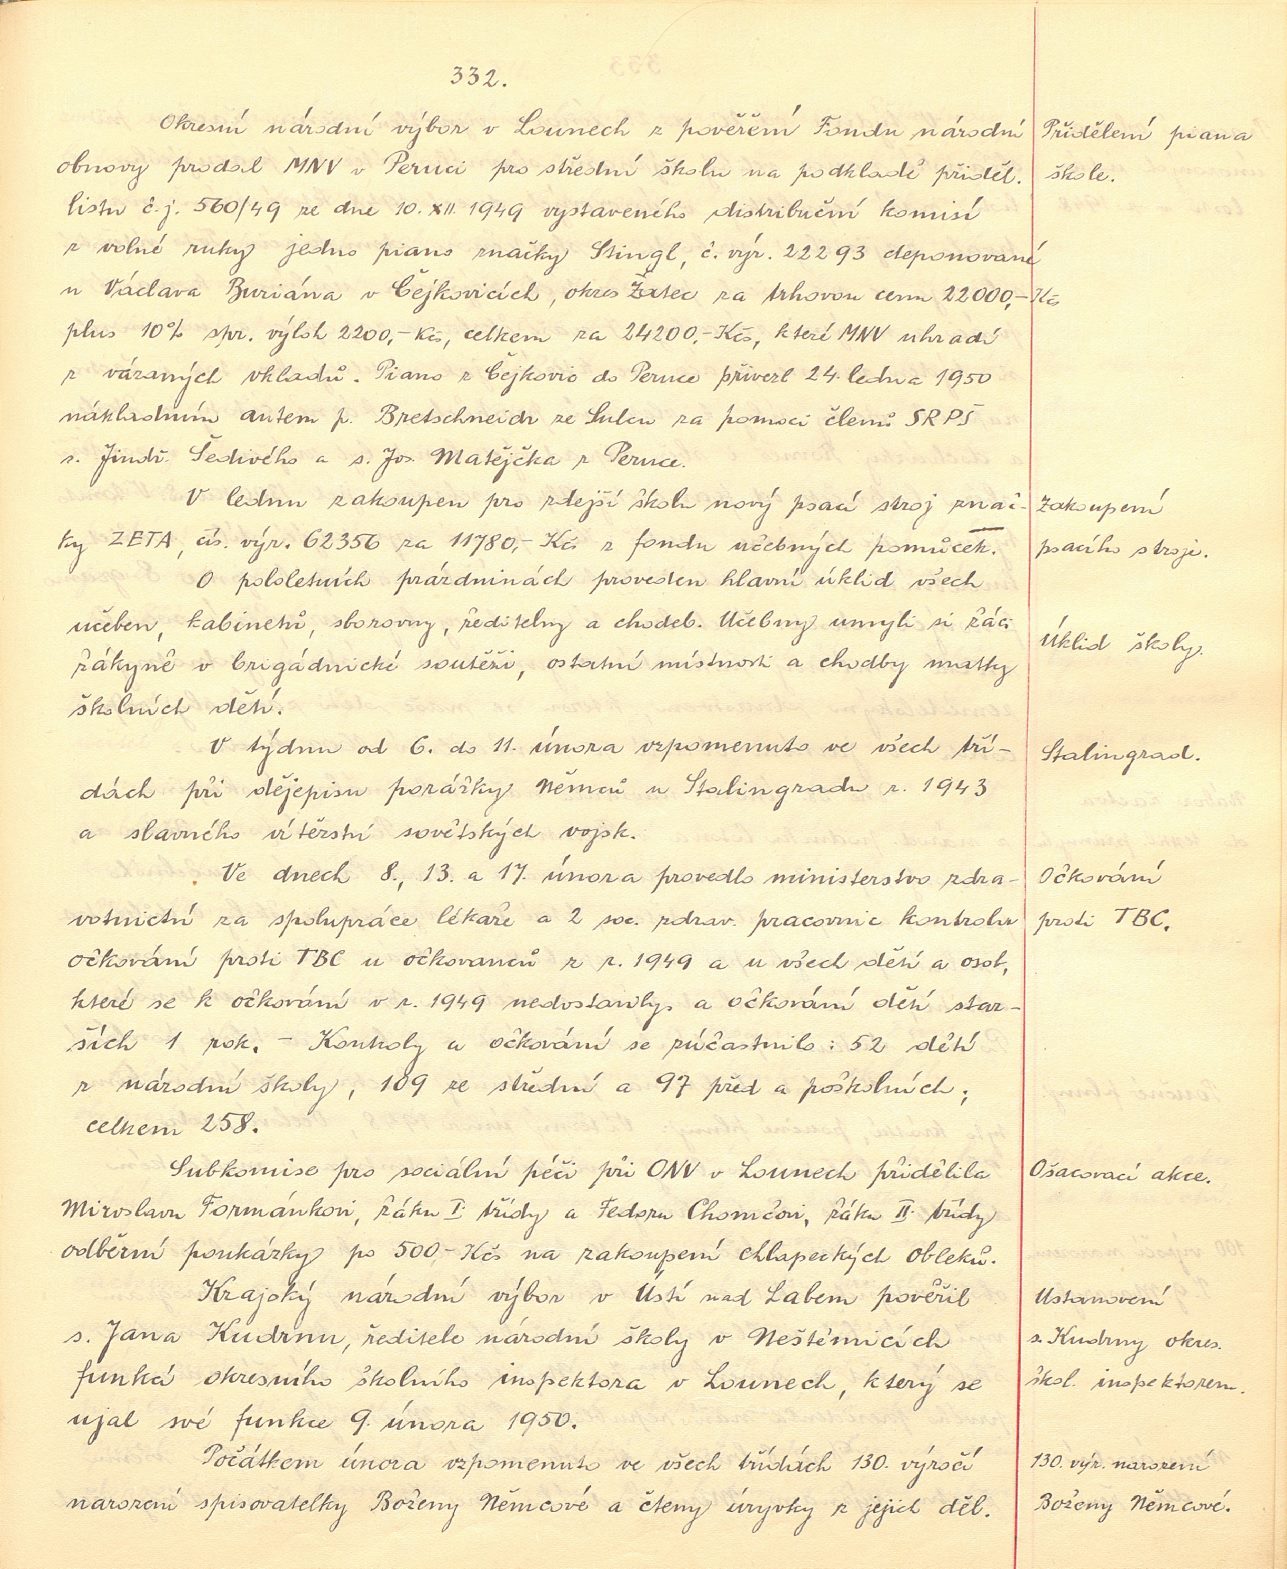 332.
Okresní národní výbor v Lounech z pověření Fondu národní
Přidělení piana
obnovy prodal MNV v Peruci pro střední školu na podkladě příděl.
škole.
listu č.j. 560/49 ze dne 10. XII. 1949 vystaveného distribuční komisí
z volné ruky jedno piano značky Stingl, č. výr. 22293 deponované
u Václava Buriána v Čejkovicích, okres Žatec za trhovou cenu 22000,- Kčs
plus 10% spr. výloh 2200,- Kčs, celkem za 24200,- Kčs, které MNV uhradí
z vázaných vkladů. Piano z Čejkovic do Peruce přivezl 24. ledna 1950
nákladním autem p. Bretschneidr ze Sulce za pomoci členů SRPŠ
s. Jindř. Šedivého a s. Jos. Matějčka z Peruce.
V lednu zakoupen pro zdejší školu nový psací stroj znač-
Zakoupení
ky ZETA, čís. výr. 62356 za 11780,- Kčs z fondu učebných pomůcek.
psacího stroje.
O pololetních prázdninách proveden hlavní úklid všech
učeben, kabinetů, sborovny, ředitelny a chodeb. Učebny umyli si žáci
Úklid školy.
žákyně v brigádnické soutěži, ostatní místnosti a chodby matky
školních dětí.
V týdnu od 6. do 11. února vzpomenuto ve všech tří-
Stalingrad.
dách při dějepisu porážky Němců u Stalingradu r. 1943
a slavného vítězství sovětských vojsk.
Ve dnech 8., 13. a 17. února provedlo ministerstvo zdra-
Očkování
votnictví za spolupráce lékaře a 2 soc. zdrav. pracovnic kontrolu
proti TBC.
očkování proti TBC u očkovanců z r. 1949 a u všech dětí a osob,
které se k očkování v r. 1949 nedostavily, a očkování dětí star-
ších 1 rok. - Kontroly a očkování se zúčastnilo: 52 dětí
z národní školy, 109 ze střední a 97 před a poškolních;
celkem 258.
Subkomise pro sociální péči při ONV v Lounech přidělila
Ošacovací akce.
Miroslavu Formánkovi, žáku I. třídy a Fedoru Chomčovi, žáku II. třídy
odběrní poukázky po 500,- Kčs na zakoupení chlapeckých obleků.
Krajský národní výbor v Ústí nad Labem pověřil
Ustanovení
s. Jana Kudrnu, ředitele národní školy v Neštěmicích
s. Kudrny okres.
funkcí okresního školního inspektora v Lounech, který se
škol. inspektorem.
ujal své funkce 9. února 1950.
Počátkem února vzpomenuto ve všech třídách 130. výročí
130. výr. narození
narození spisovatelky Boženy Němcové a čteny úryvky z jejich děl.
Boženy Němcové.